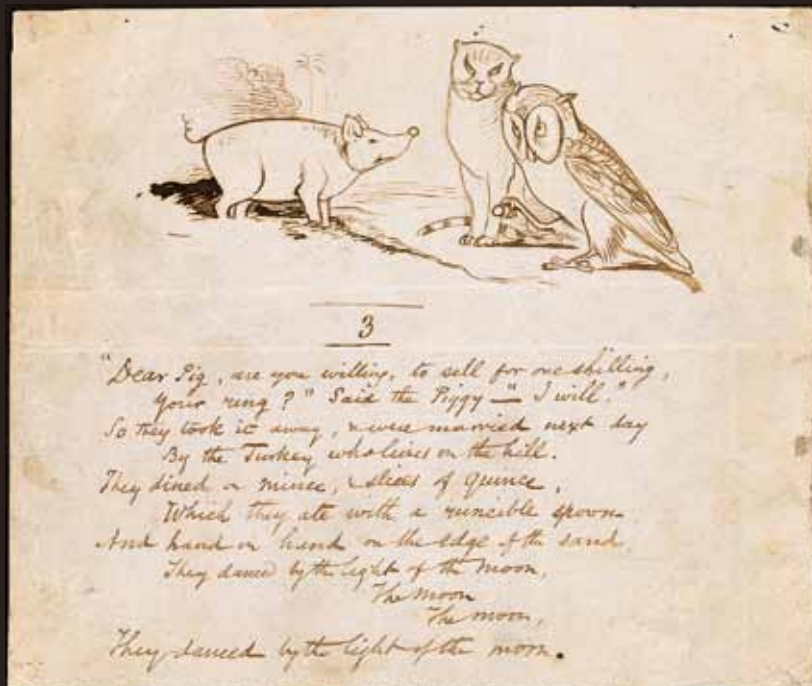 3
"Dear Pig, are you willing, to sell for one shilling,
Your ring?" Said the Piggy — "I will."
So they took it away, & were married next day
By the Turkey who lives on the hill.
They dined on mince, & slices of quince,
Which they ate with a runcible spoon.
And hand in hand on the edge of the sand.
They danced by the light of the moon,
The moon
The moon,
They danced by the light of the moon.